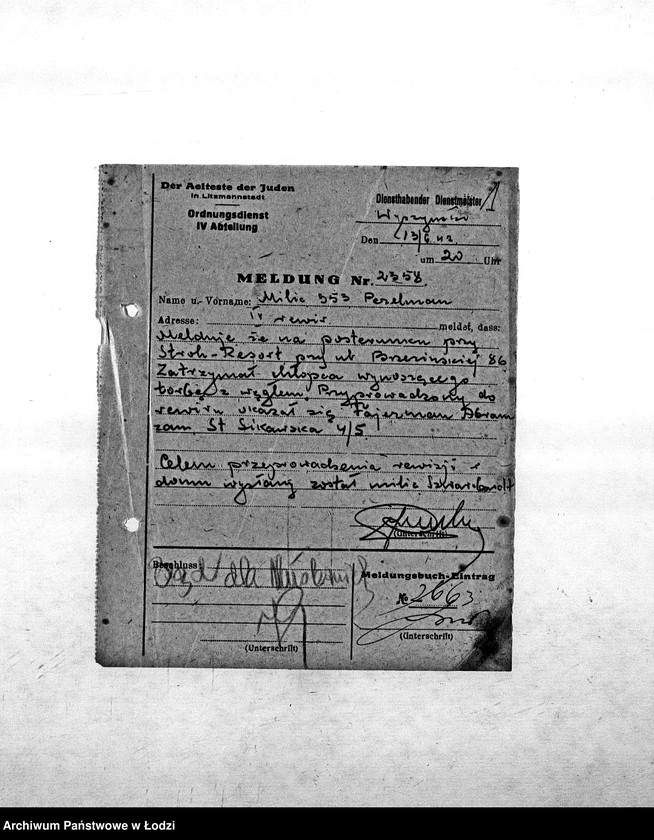 Der Aelteste der Juden
in Litzmannstadt
Ordnungsdienst
IV Abteilung
Diensthabender Dienstmeister
1
Den 13/6 42
um 20 Uhr
MELDUNG Nr. 2358
Name u. Vorname: Milic 353 Perelman
Adresse: IV rewir meldet, dass:
Melduje że na posterunku przy
Stroh-Resort przy ul. Brzezińskiej 86
Zatrzymał chłopca wynoszącego
torbę z węglem. Przyprowadzony do
rewiru okazał się Fajerman Abram
zam. St Sikawska 4/5
Celem przeprowadzenia rewizji w
domu wysłany został milic
(Unterschrift)
Beschluss: Sąd dla
(Unterschrift)
Meldungsbuch-Eintrag
№ 2663
(Unterschrift)
Archiwum Państwowe w Łodzi